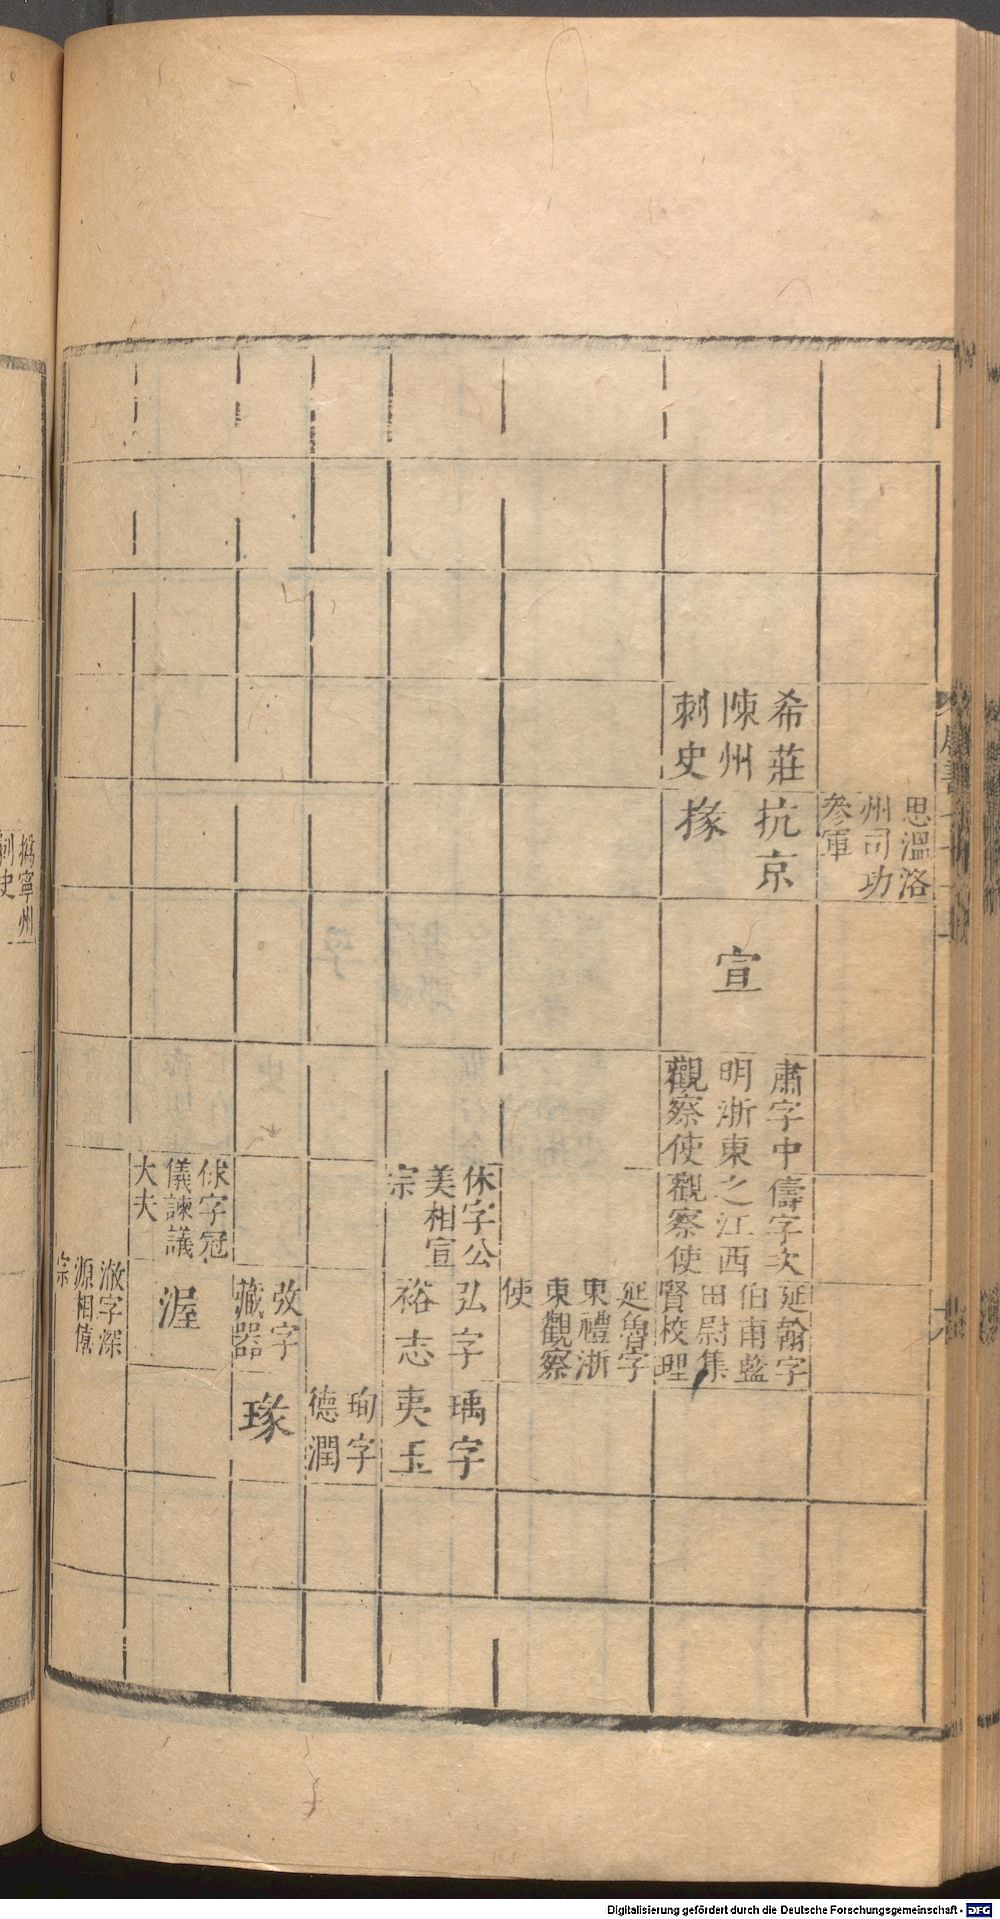 思溫洛
州司功
參軍
希莊
陳州
刺史
抗京
掾
宣
肅字中
明浙東
觀察使
儔字次
之江西
觀察使
延翰字
伯南藍
田尉集
賢校理
延魯字
東禮浙
東觀察
使
休字公
美相宣
宗
弘字
裕志
瑀字
夷玉
珣字
德潤
弢字
藏器
璲
俅字冠
儀諫議
大夫
渥
澈字深
源相僖
宗
撝寧州
刺史
Digitalisierung gefördert durch die Deutsche Forschungsgemeinschaft - DFG